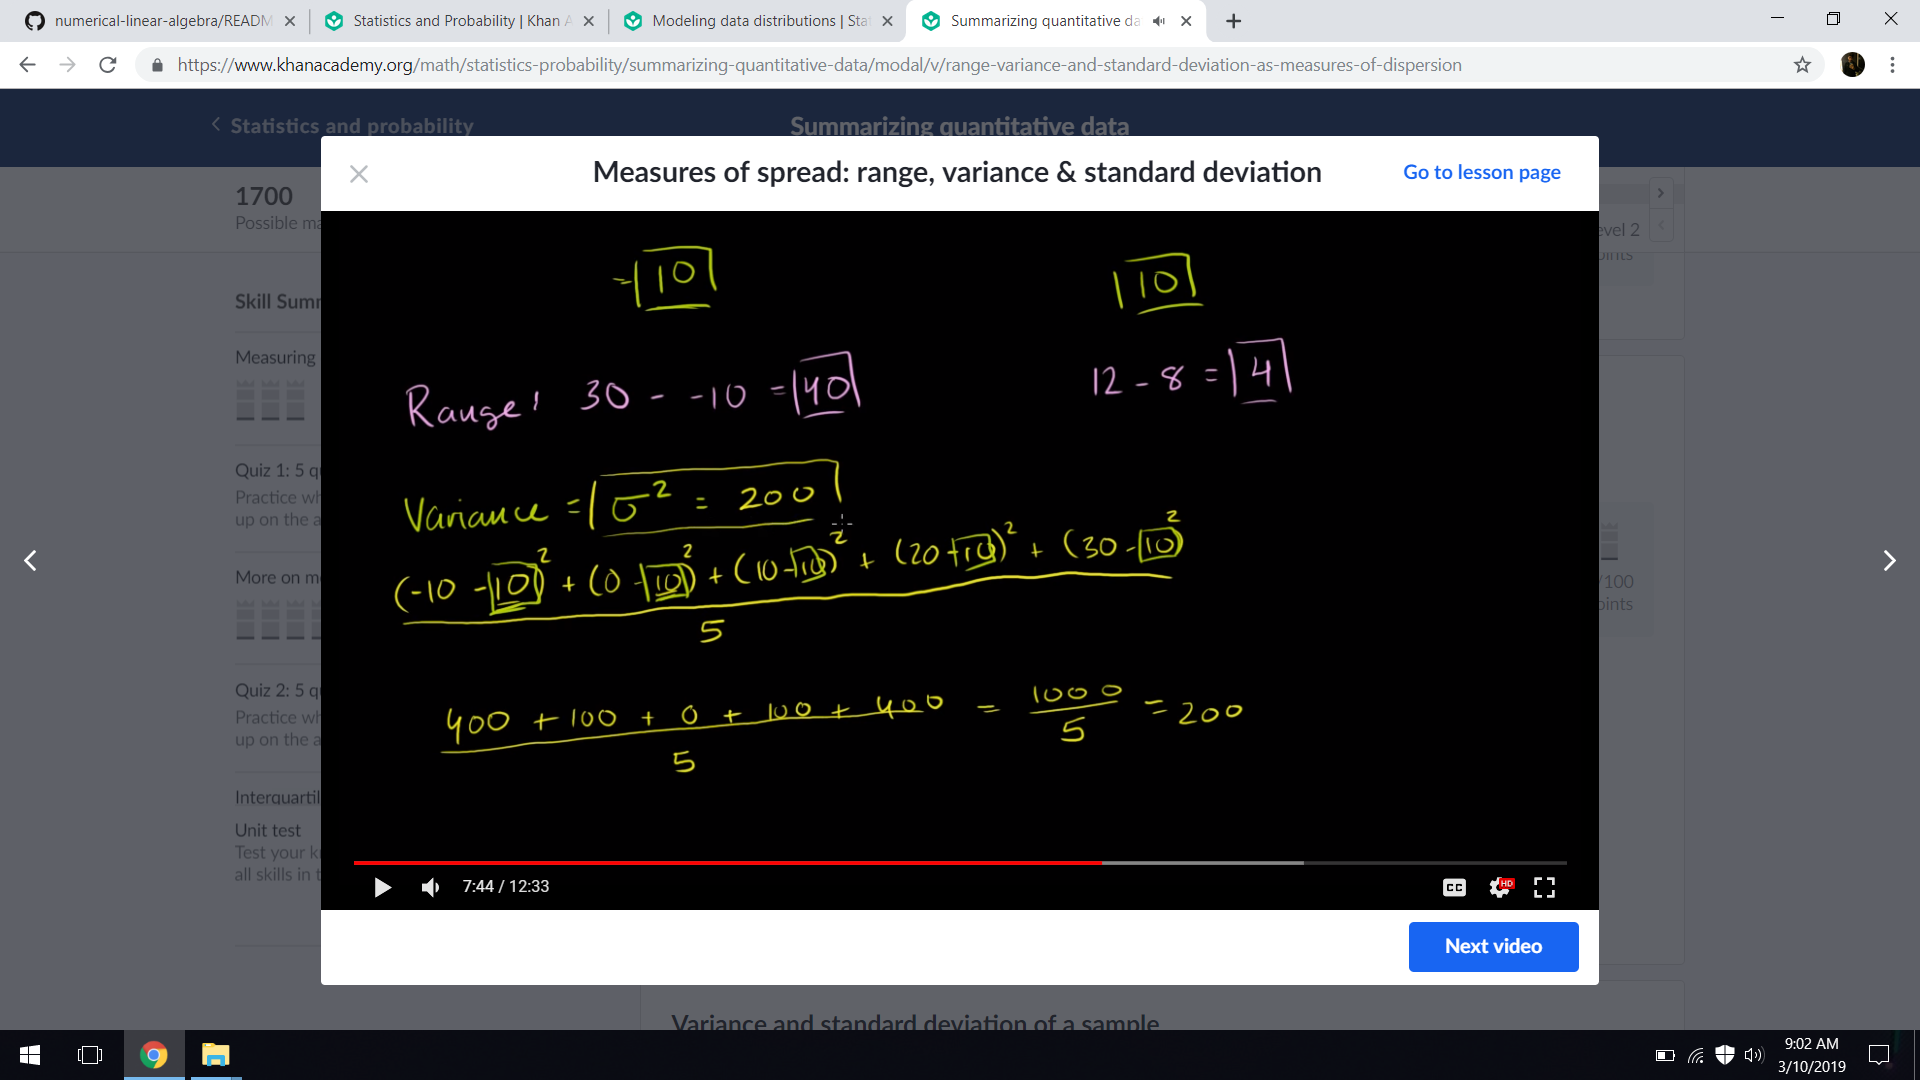 numerical-linear-algebra/READM
Statistics and Probability | Khan A
Modeling data distributions | Stat
Summarizing quantitative da
https://www.khanacademy.org/math/statistics-probability/summarizing-quantitative-data/modal/v/range-variance-and-standard-deviation-as-measures-of-dispersion
Statistics and probability
Summarizing quantitative data
1700
Possible ma
Skill Summ
Measuring
Quiz 1: 5 qu
Practice wh
up on the a
More on me
Quiz 2: 5 qu
Practice wh
up on the a
Interquartil
Unit test
Test your kn
all skills in t
Measures of spread: range, variance & standard deviation
Go to lesson page
= 10
10
Range: 30 - -10 = 40
12 - 8 = 4
Variance = σ² = 200
(-10 - 10)² + (0 - 10)² + (10 - 10)² + (20 - 10)² + (30 - 10)²
5
400 + 100 + 0 + 100 + 400 = 1000 = 200
5 5
7:44 / 12:33
CC
HD
Next video
evel 2
oints
/100
oints
Variance and standard deviation of a sample
9:02 AM
3/10/2019